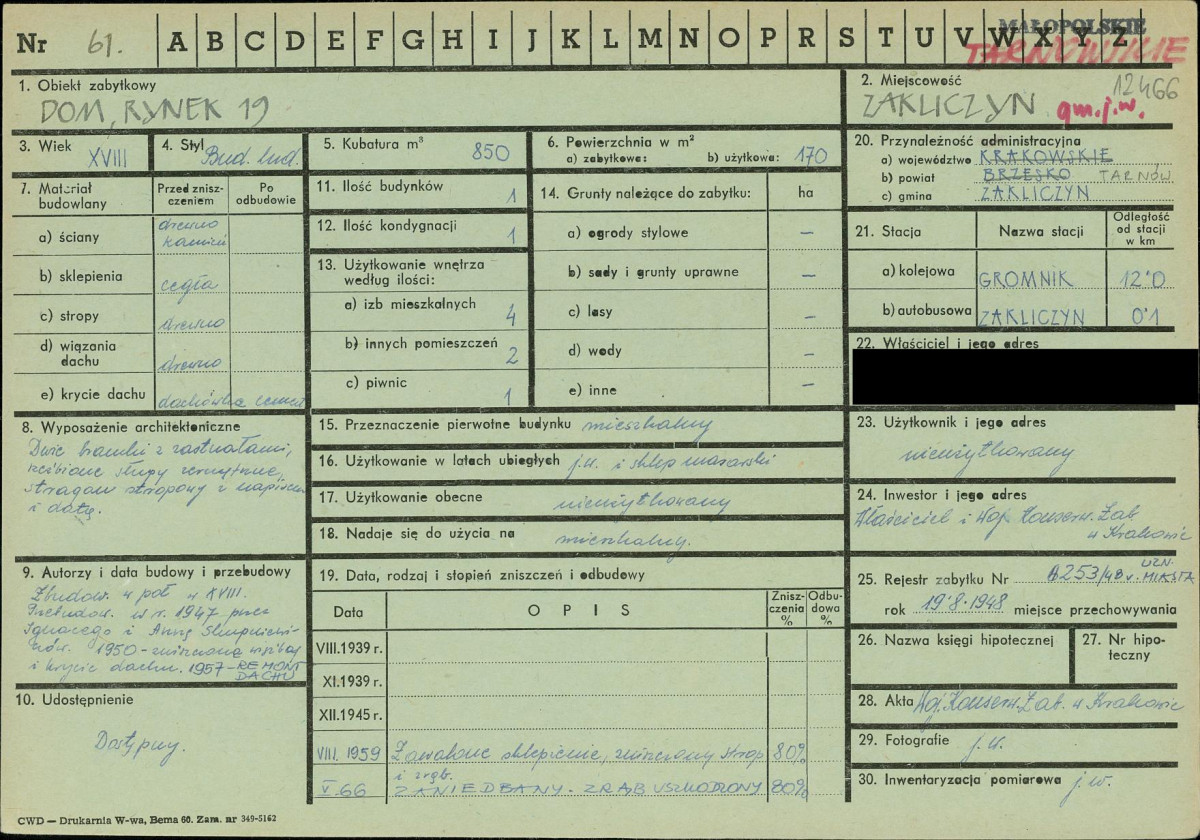 Nr 61. A B C D E F G H I J K L M N O P R S T U V W X Y Z
MAŁOPOLSKIE
TARNOWSKIE
1. Obiekt zabytkowy
DOM, RYNEK 19
2. Miejscowość 12466
ZAKLICZYN gm.j.w.
3. Wiek XVIII
4. Styl Bud. lud.
5. Kubatura m³ 850
6. Powierzchnia w m²
a) zabytkowa: b) użytkowa: 170
20. Przynależność administracyjna
a) województwo KRAKOWSKIE
b) powiat BRZESKO TARNÓW
c) gmina ZAKLICZYN
7. Materiał budowlany
Przed znisz-
czeniem
Po
odbudowie
a) ściany drewno
kamień
b) sklepienia cegła
c) stropy drewno
d) wiązania
dachu drewno
e) krycie dachu dachówka cement
11. Ilość budynków 1
12. Ilość kondygnacji 1
13. Użytkowanie wnętrza
według ilości:
a) izb mieszkalnych 4
b) innych pomieszczeń 2
c) piwnic 1
14. Grunty należące do zabytku: ha
a) ogrody stylowe –
b) sady i grunty uprawne –
c) lasy –
d) wody –
e) inne –
21. Stacja Nazwa stacji
Odległość
od stacji
w km
a) kolejowa GROMNIK 12·0
b) autobusowa ZAKLICZYN 0·1
22. Właściciel i jego adres
8. Wyposażenie architektoniczne
Dwie bramki z zastrzałami,
słupy
stragarz stropowy z napisem
i datą.
15. Przeznaczenie pierwotne budynku mieszkalny
16. Użytkowanie w latach ubiegłych j.w. i sklep masarski
17. Użytkowanie obecne nieużytkowany
18. Nadaje się do użycia na mieszkalny.
23. Użytkownik i jego adres
nieużytkowany
24. Inwestor i jego adres
Właściciel i Woj. Konserw. Zab.
w Krakowie
9. Autorzy i data budowy i przebudowy
Zbudow. w poł w XVIII.
Przebudow. w r. 1947 przez
Ignacego i Annę
1950 - zniszczone
i krycie dachu. 1957 - REMONT
DACHU
10. Udostępnienie
Dostępny.
19. Data, rodzaj i stopień zniszczeń i odbudowy
Data OPIS
Znisz-
czenia
%
Odbu-
dowa
%
VIII. 1939 r.
XI. 1939 r.
XII. 1945 r.
VIII. 1959 Zawalone sklepienie, zniszczony strop 80%
i zrąb.
V. 66 ZANIEDBANY - ZRĄB USZKODZONY 80%
25. Rejestr zabytku Nr A253/48 v. UZN.
MIASTA
rok 19·8·1948 miejsce przechowywania
26. Nazwa księgi hipotecznej
27. Nr hipo-
teczny
28. Akta Woj. Konserw. Zab. w Krakowie
29. Fotografie j.w.
30. Inwentaryzacja pomiarowa j.w.
CWD — Drukarnia W-wa, Bema 60. Zam. nr 349-5162